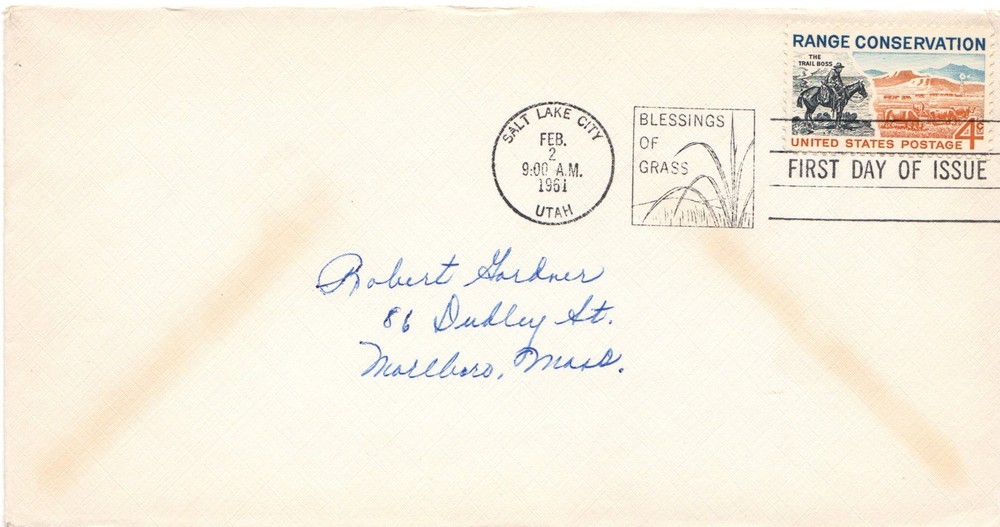 RANGE CONSERVATION
THE
TRAIL BOSS
4¢
UNITED STATES POSTAGE
SALT LAKE CITY
FEB.
2
9:00 A.M.
1961
UTAH
BLESSINGS
OF
GRASS
FIRST DAY OF ISSUE
Robert Gardner
86 Dudley St.
Marlboro, Mass.